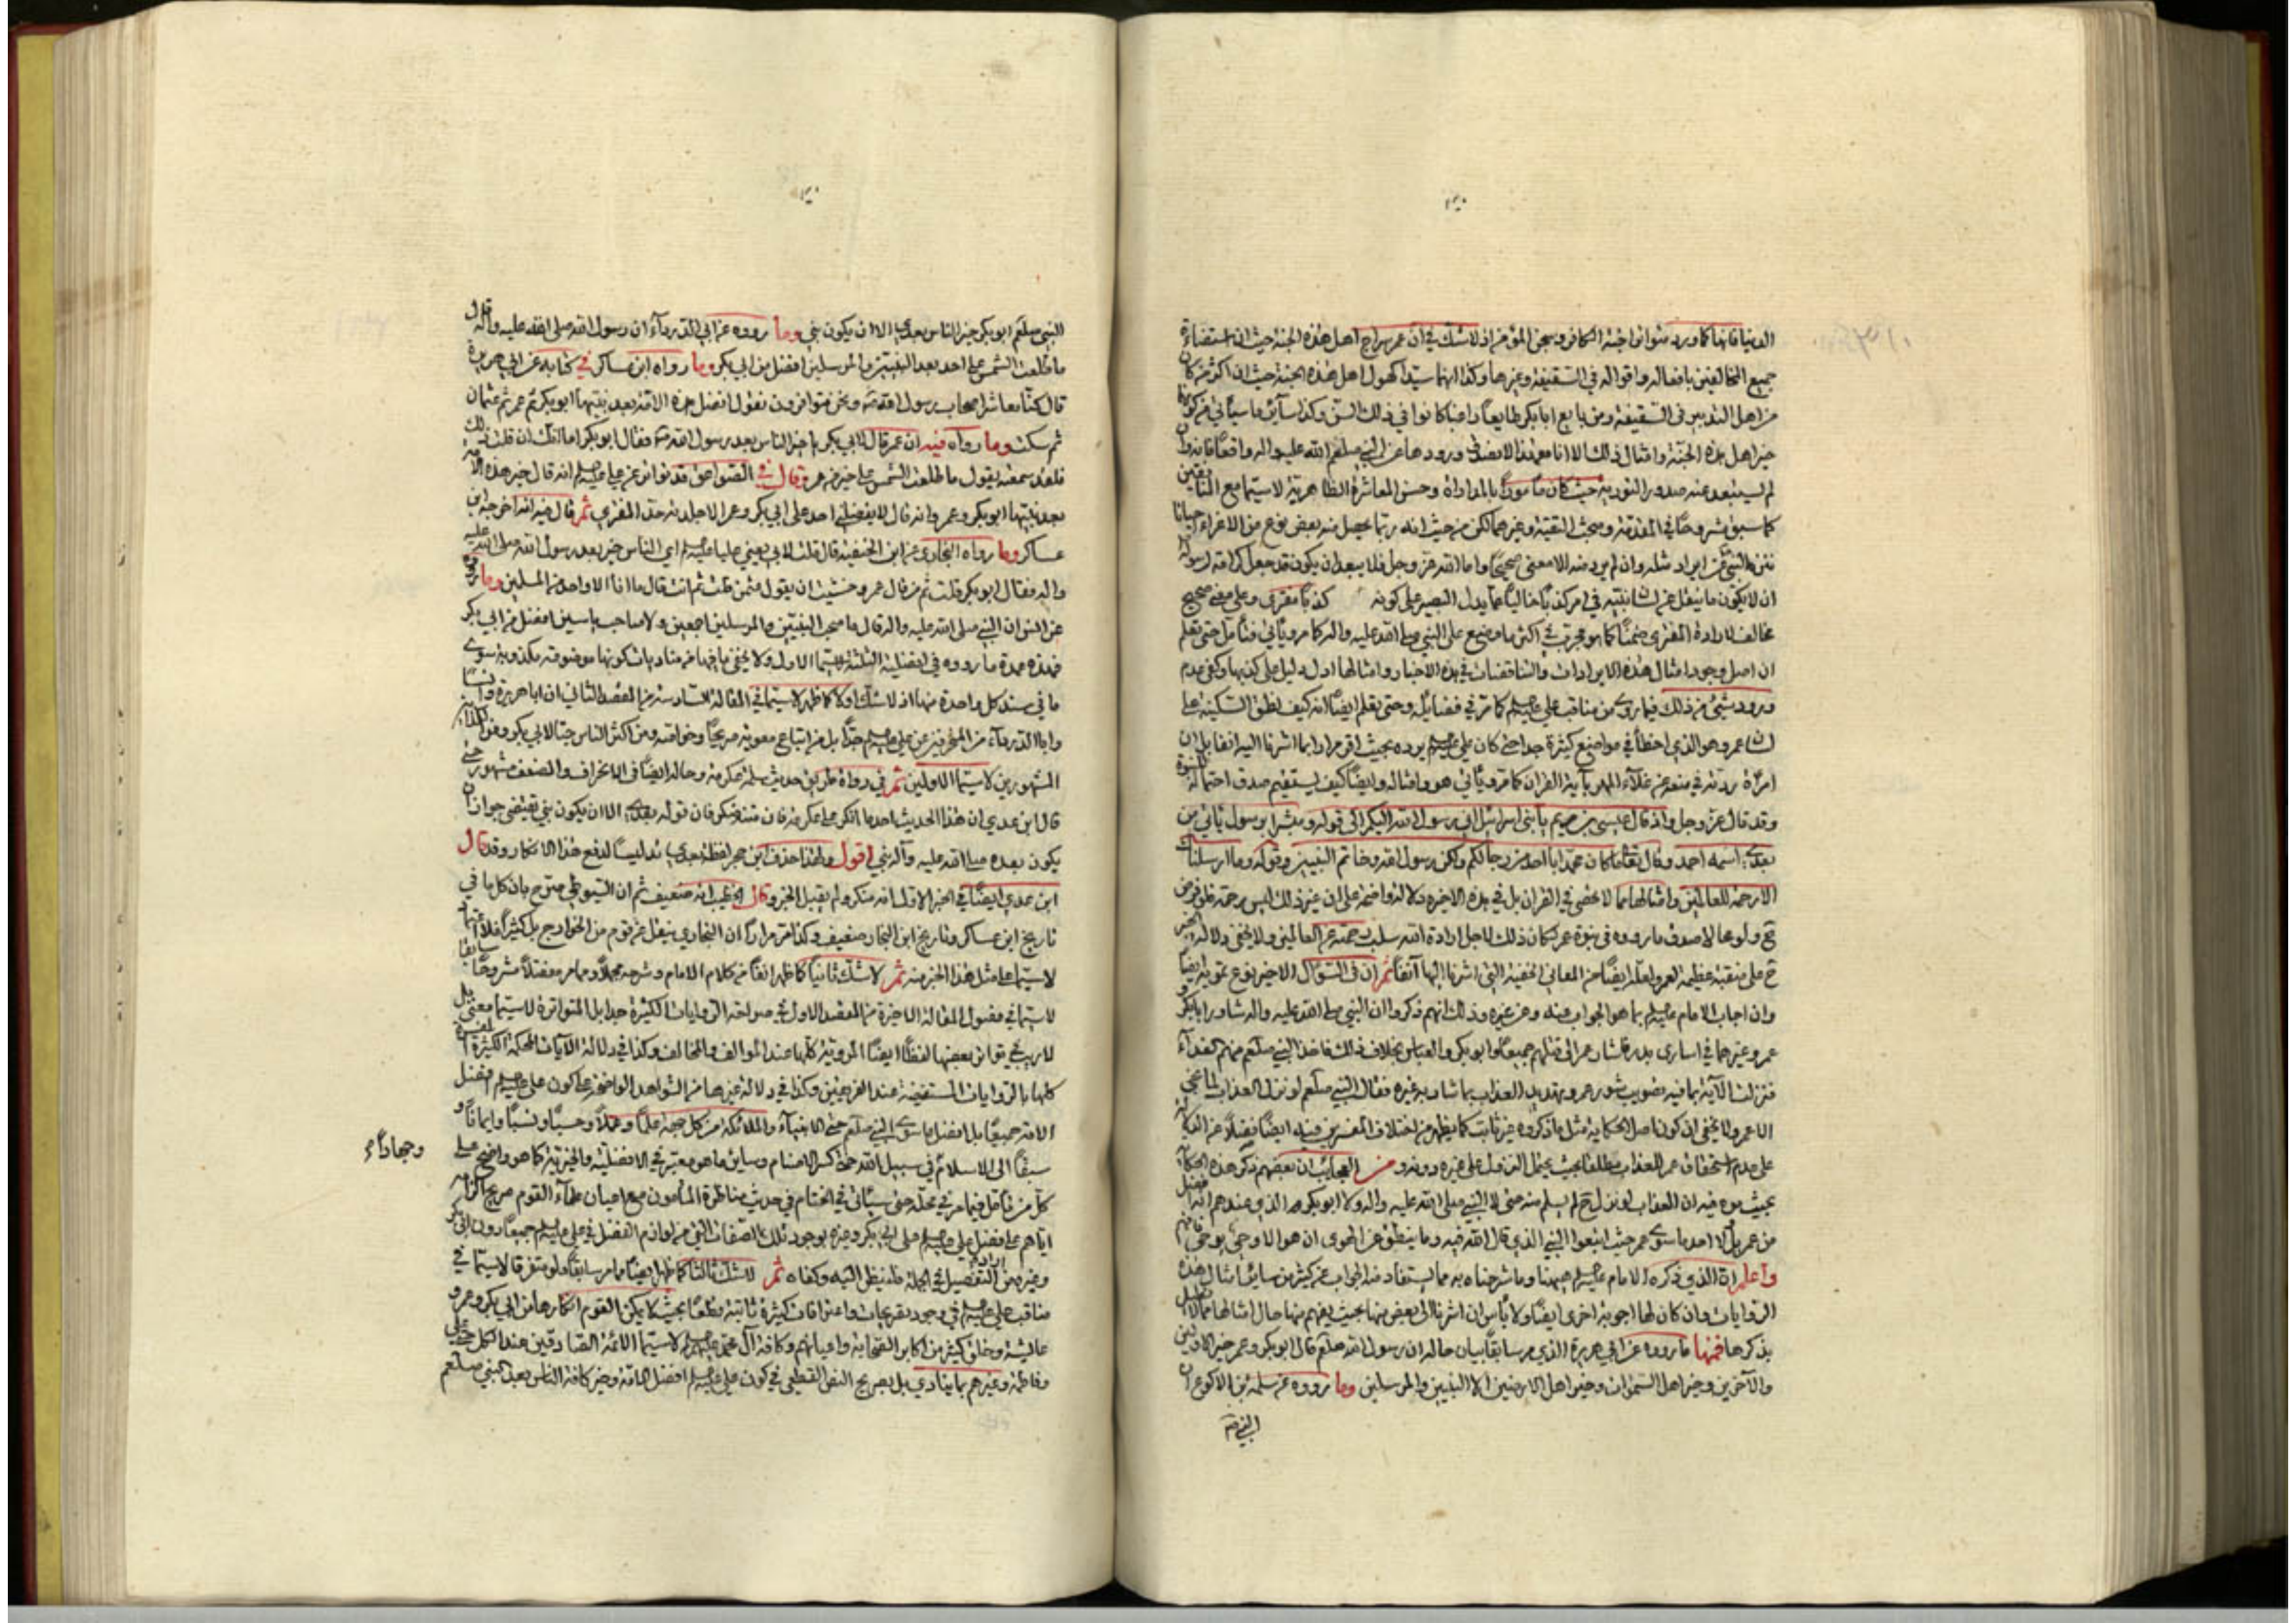 الدنيا فانها كما ورد متواترا جنة الكافر وسجن المؤمن اذ لا شك في ان عمر سراج اهل هذه الجنة حيث ان استضاءة
جميع المخالفين بافعاله واقواله في السقيفة وغيرها وكذا انهما سيدا كهول اهل هذه الجنة حيث ان اكثر من كان
من اهل التدبير في السقيفة ومن بايع ابابكر طايعا راغبا كانوا في ذلك السن وكذا ساير ما سيأتي من كونهما
خير اهل هذه الجنة وامثال ذلك الا انا مع هذا لا نصدق ورودها عن النبي صلى الله عليه واله واقعا فانه وان
لم يستبعد عنه صدور التورية حيث كان مأمورا بالمداراة وحسن المعاشرة الظاهرية لاسيما مع المنافقين
كما سبق مشروحا في المقدمة ومبحث التقية وغيرهما لكن من حيث انه ربما يحصل منه بعض نوع من الاغراء احيانا
ان لا يكون ما ينقل عن لسان نبيه في امر كذبا خاليا عما يدل البصير على كونه كذبا مفترى وعلى معنى صحيح
مخالف لارادة المفتري ضمنا كما هو مجرب في اكثر ما وضع على النبي صلى الله عليه واله كما مر ويأتي فتأمل حتى تعلم
ان اصل وجود امثال هذه الايرادات والتناقضات في هذه الاخبار وامثالها ادل دليل على كذبها وكفى عدم
ورود شيء من ذلك فيما روي من مناقب علي عليه السلم كما مر في فضايله وحتى تعلم ايضا انه كيف نطق السكينة على
لسان عمر وهو الذي اخطأ في مواضع كثيرة جدا حتى كان علي عليه السلم يرده بحيث اقر مرارا بما اشرنا اليه انفا بل ان
امرأة ردته في منعه عن غلاء المهر بآية القران كما مر ويأتي هو وامثاله وايضا كيف يستقيم صدق احتماله النبوة
وقد قال عز وجل واذ قال عيسى بن مريم يا بني اسرائيل اني رسول الله اليكم الى قوله ومبشرا برسول ياتي من
بعدي اسمه احمد وقال تعالى ما كان محمد ابا احد من رجالكم ولكن رسول الله وخاتم النبيين وقوله وما ارسلناك
الا رحمة للعالمين وامثالها مما لا تحصى في القران بل في هذه الاخيرة دلالة واضحة على ان غير ذلك ليس برحمة فلو فرض
ح ولو محالا صدق ما رووه في نبوة عمر لكان ذلك لاجل ارادة الله سلب رحمته عن العالمين ولا يخفى دلالة الخبر
ح على منقبة عظيمة لعمر ولعله ايضا من المعاني الخفية التي اشرنا اليها آنفا ثم ان في السؤال الاخير نوع تمويه ايضا
وان اجاب الامام عليه السلم بما هو الجواب عنه وعن غيره وذلك انهم ذكروا ان النبي صلى الله عليه واله شاور ابابكر و
عمر وغيرهما في اسارى بدر فاشار عمر الى قتلهم جميعا وابوبكر والعباس بخلاف ذلك فاخذ النبي صلعم منهم الفداء
فنزلت الآية بما فيه تصويب شور عمر وتهديد العذاب بما شاور به غيره فقال النبي صلعم لو نزل العذاب لما نجى
الا عمر ولا يخفى ان كون اصل الحكاية مثل ما ذكروه غير ثابت كما يظهر من اختلاف المفسرين فيه ايضا
على عدم استحقاق عمر للعذاب مطلقا بحيث يحتمل النزول على غيره دونه ومن العجايب ان بعضهم ذكر هذه الحكاية
بحيث مره فيه ان العذاب لو نزل ح لم يسلم منه حتى لا النبي صلى الله عليه واله ولا ابوبكر الذي عندهم انه افضل
من عمر بل لا احد ما سوى عمر حيث اتبعوا النبي الذي قال الله فيه وما ينطق عن الهوى ان هو الا وحي يوحى
واعلم ان الذي ذكره الامام عليه السلم هيهنا وما شرحناه به مما يستفاد منه الجواب عن كثير من ساير امثال هذه
الروايات وان كان لها اجوبة اخرى ايضا ولا بأس ان اشرنا الى بعض منها بحيث يفهم منها حال امثالها
بذكرها فمنها ما رووه عن ابي هريرة الذي مر سابقا بيان حاله ان رسول الله صلعم قال ابوبكر وعمر خير الاولين
والآخرين وخير اهل السموات وخير اهل الارضين الا النبيين والمرسلين وما رووه عن سلمة بن الاكوع ان
النبي صم
النبي صلعم ابوبكر خير الناس بعدي الا ان يكون نبي وما رووه عن ابي الدرداء ان رسول الله صلى الله عليه وآله قال
ما طلعت الشمس على احد بعد النبيين والمرسلين افضل من ابي بكر وما رواه ابن عساكر في كتابه عن ابي هريرة
قال كنا معاشر اصحاب رسول الله ص ونحن متوافرون نقول افضل هذه الامة بعد نبيها ابوبكر ثم عمر ثم عثمان
ثم سكت وما رواه فيه ان عمر قال لابي بكر يا خير الناس بعد رسول الله ص فقال ابوبكر اما انك ان قلت ذلك
فلقد سمعته يقول ما طلعت الشمس على خير من عمر وقال في الصواعق قد تواتر عن علي عليه السلم انه قال خير هذه الامة
بعد نبيها ابوبكر وعمر وانه قال لا يفضلني احد على ابي بكر وعمر الا جلدته حد المفتري ثم قال فيه انه اخرجه ابن
عساكر وما رواه البخاري عن ابن الحنفية قال قلت لابي يعني عليا عليه السلم اي الناس خير بعد رسول الله صلى الله عليه
واله فقال ابوبكر قلت ثم من قال عمر وخشيت ان يقول عثمن قلت ثم انت قال ما انا الا واحد من المسلمين وما رووه
عن انس ان النبي صلى الله عليه واله قال ما صحب النبيين والمرسلين اجمعين ولا صاحب ياسين افضل من ابي بكر
فهذه عمدة ما رووه في افضلية الثلثة لاسيما الاول ولا يخفى ما فيها من مناديات كونها موضوعة مكذوبة سوى
ما في سند كل واحدة منها اذ لا شك اولا كما ظهر لاسيما في المقالة السادسة من المقصد الثاني ان ابا هريرة وانسا
وابا الدرداء من المنحرفين عن علي عليه السلم جدا بل من اتباع معوية صريحا وخواصه ومن اكثر الناس حبا لابي بكر
المشهورين لاسيما الاولين ثم في رواة طريق حديث سلمة عكرمة وحاله ايضا في الانحراف والضعف مشهور حتى
قال ابن عدي ان هذا الحديث احد ما انكر على عكرمة فان متنه منكر فان قوله بعدي الا ان يكون نبي يقتضي جواز ان
يكون بعده صلى الله عليه وآله نبي اقول ولهذا حذف ابن حجر لفظة بعدي تدليسا لدفع هذا الانكار وقد قال
ابن عدي ايضا في الخبر الاول انه منكر ولم يقبل الخبر وقال الخطيب انه ضعيف ثم ان السيوطي صرح بان كل ما في
تاريخ ابن عساكر وتاريخ ابن النجار ضعيف وكذا مر مرارا ان البخاري ينقل عن قوم من الخوارج بل كثيرا
لاسيما على مثل هذا الخبر منه ثم لا شك ثانيا كما ظهر انفا من كلام الامام وشرحه مجملا ومما مر مفصلا مشروحا سابقا
لاسيما في فصول المقالة الاخيرة من المقصد الاول في صراحة الروايات الكثيرة جدا بل المتواترة لاسيما معنى بل
لا ريب في تواتر بعضها لفظا ايضا المروية كلها عند المؤالف والمخالف وكذا في دلالة الآيات المحكمة الكثيرة المفسرة
كلها بالروايات المستفيضة عند الفريقين وكذا في دلالة غيرها من الشواهد الواضحة على كون علي عليه السلم افضل
الامة جميعا بل افضل ما سوى النبي صلعم حتى الانبياء والملائكة من كل جهة علما وعملا وحسبا ونسبا وايمانا و
وجهادا
سبقا الى الاسلام في سبيل الله حتى كسر الاصنام وساير ما هو معتبر في الافضلية والخيرية كما هو واضح على
كل من تأمل فيما مر في محله حتى سيأتي في الختام في حديث مناظرة المأمون مع اعيان علماء القوم صريح الزامه
اياهم على افضل علي عليه السلم على ابي بكر وغيره بوجود تلك الصفات التي من لوازم الفضل في علي عليه السلم جميعا دون ابي بكر
وغيره فمن اراد التفصيل في الجملة فلينظر اليه وكفاه ثم لا شك ثالثا كما ظهر ايضا مما مر سابقا ولو متفرقا لاسيما في
مناقب علي عليه السلم في وجود تصريحات واعترافات كثيرة ثابتة قطعا بحيث لا يمكن القوم انكارها من ابي بكر وعمر و
عايشة وخلق كثير من اكابر الصحابة واعيانهم وكافة آل محمد عليهم السلم لاسيما الائمة الصادقين عند الكل حتى علي
وفاطمة وغيرهم بما ينادي بل بصريح النص القطعي في كون علي عليه السلم افضل الامة وخير كافة الناس بعد النبي صلعم